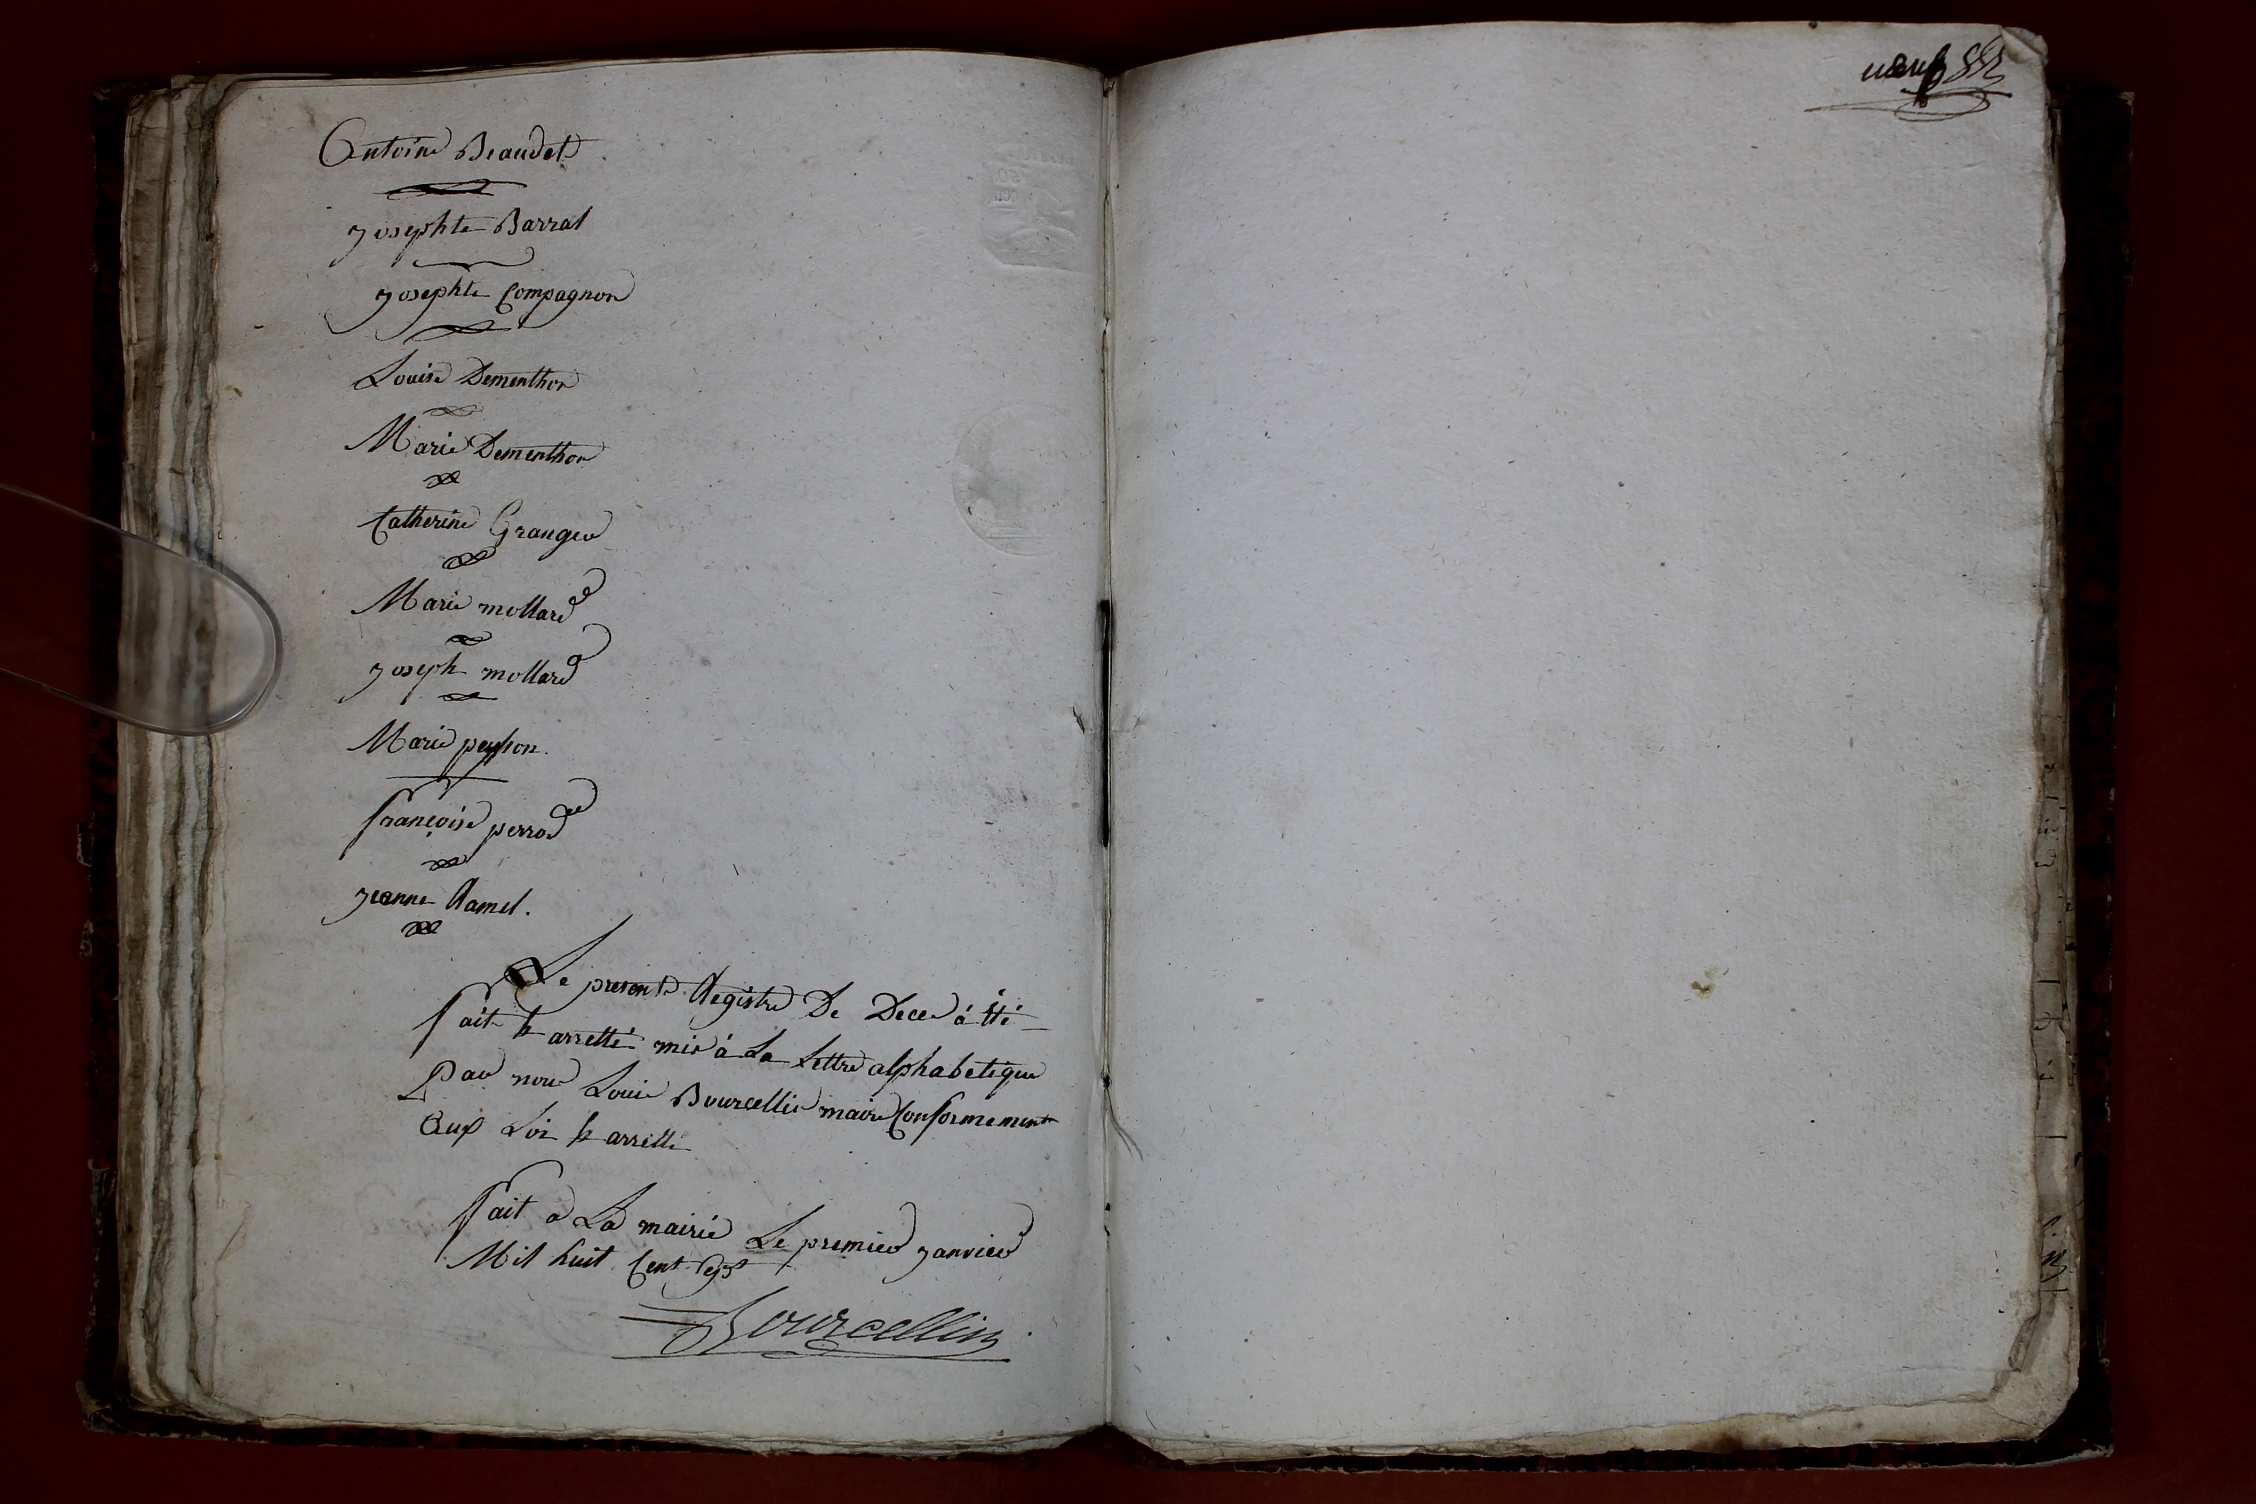 Antoine Beaudet
Josephte Barral
Josephte Compagnon
Louise Dementhon
Marie Dementhon
Catherine Granger
Marie mollard
Joseph mollard
Marie peysson.
françoise perrod
Jeanne Ramel.
Le present Registre De Decer à été
fait & arretté mis à La Lettre alphabetique
Par nous Louis Bourcellin maire Conformement
Aux Loix & arretté
fait a La mairie Le premier janvier
Mil huit Cent sept
Bourcellin
neuf